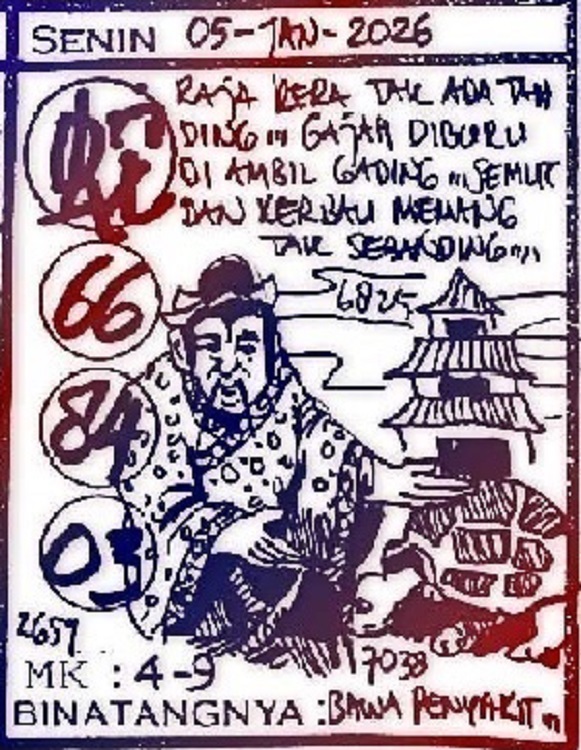 SENIN 05-JAN-2026
RAJA KERA TAK ADA TAN
DING ,,, GAJAH DIBURU
DI AMBIL GADING ,,, SEMUT
DAN KERBAU MEMANG
TAK SEBANDING ,,,,
66
6825
84
03
2659
MK : 4-9
7038
BINATANGNYA : BAWA PENYAKIT ,,